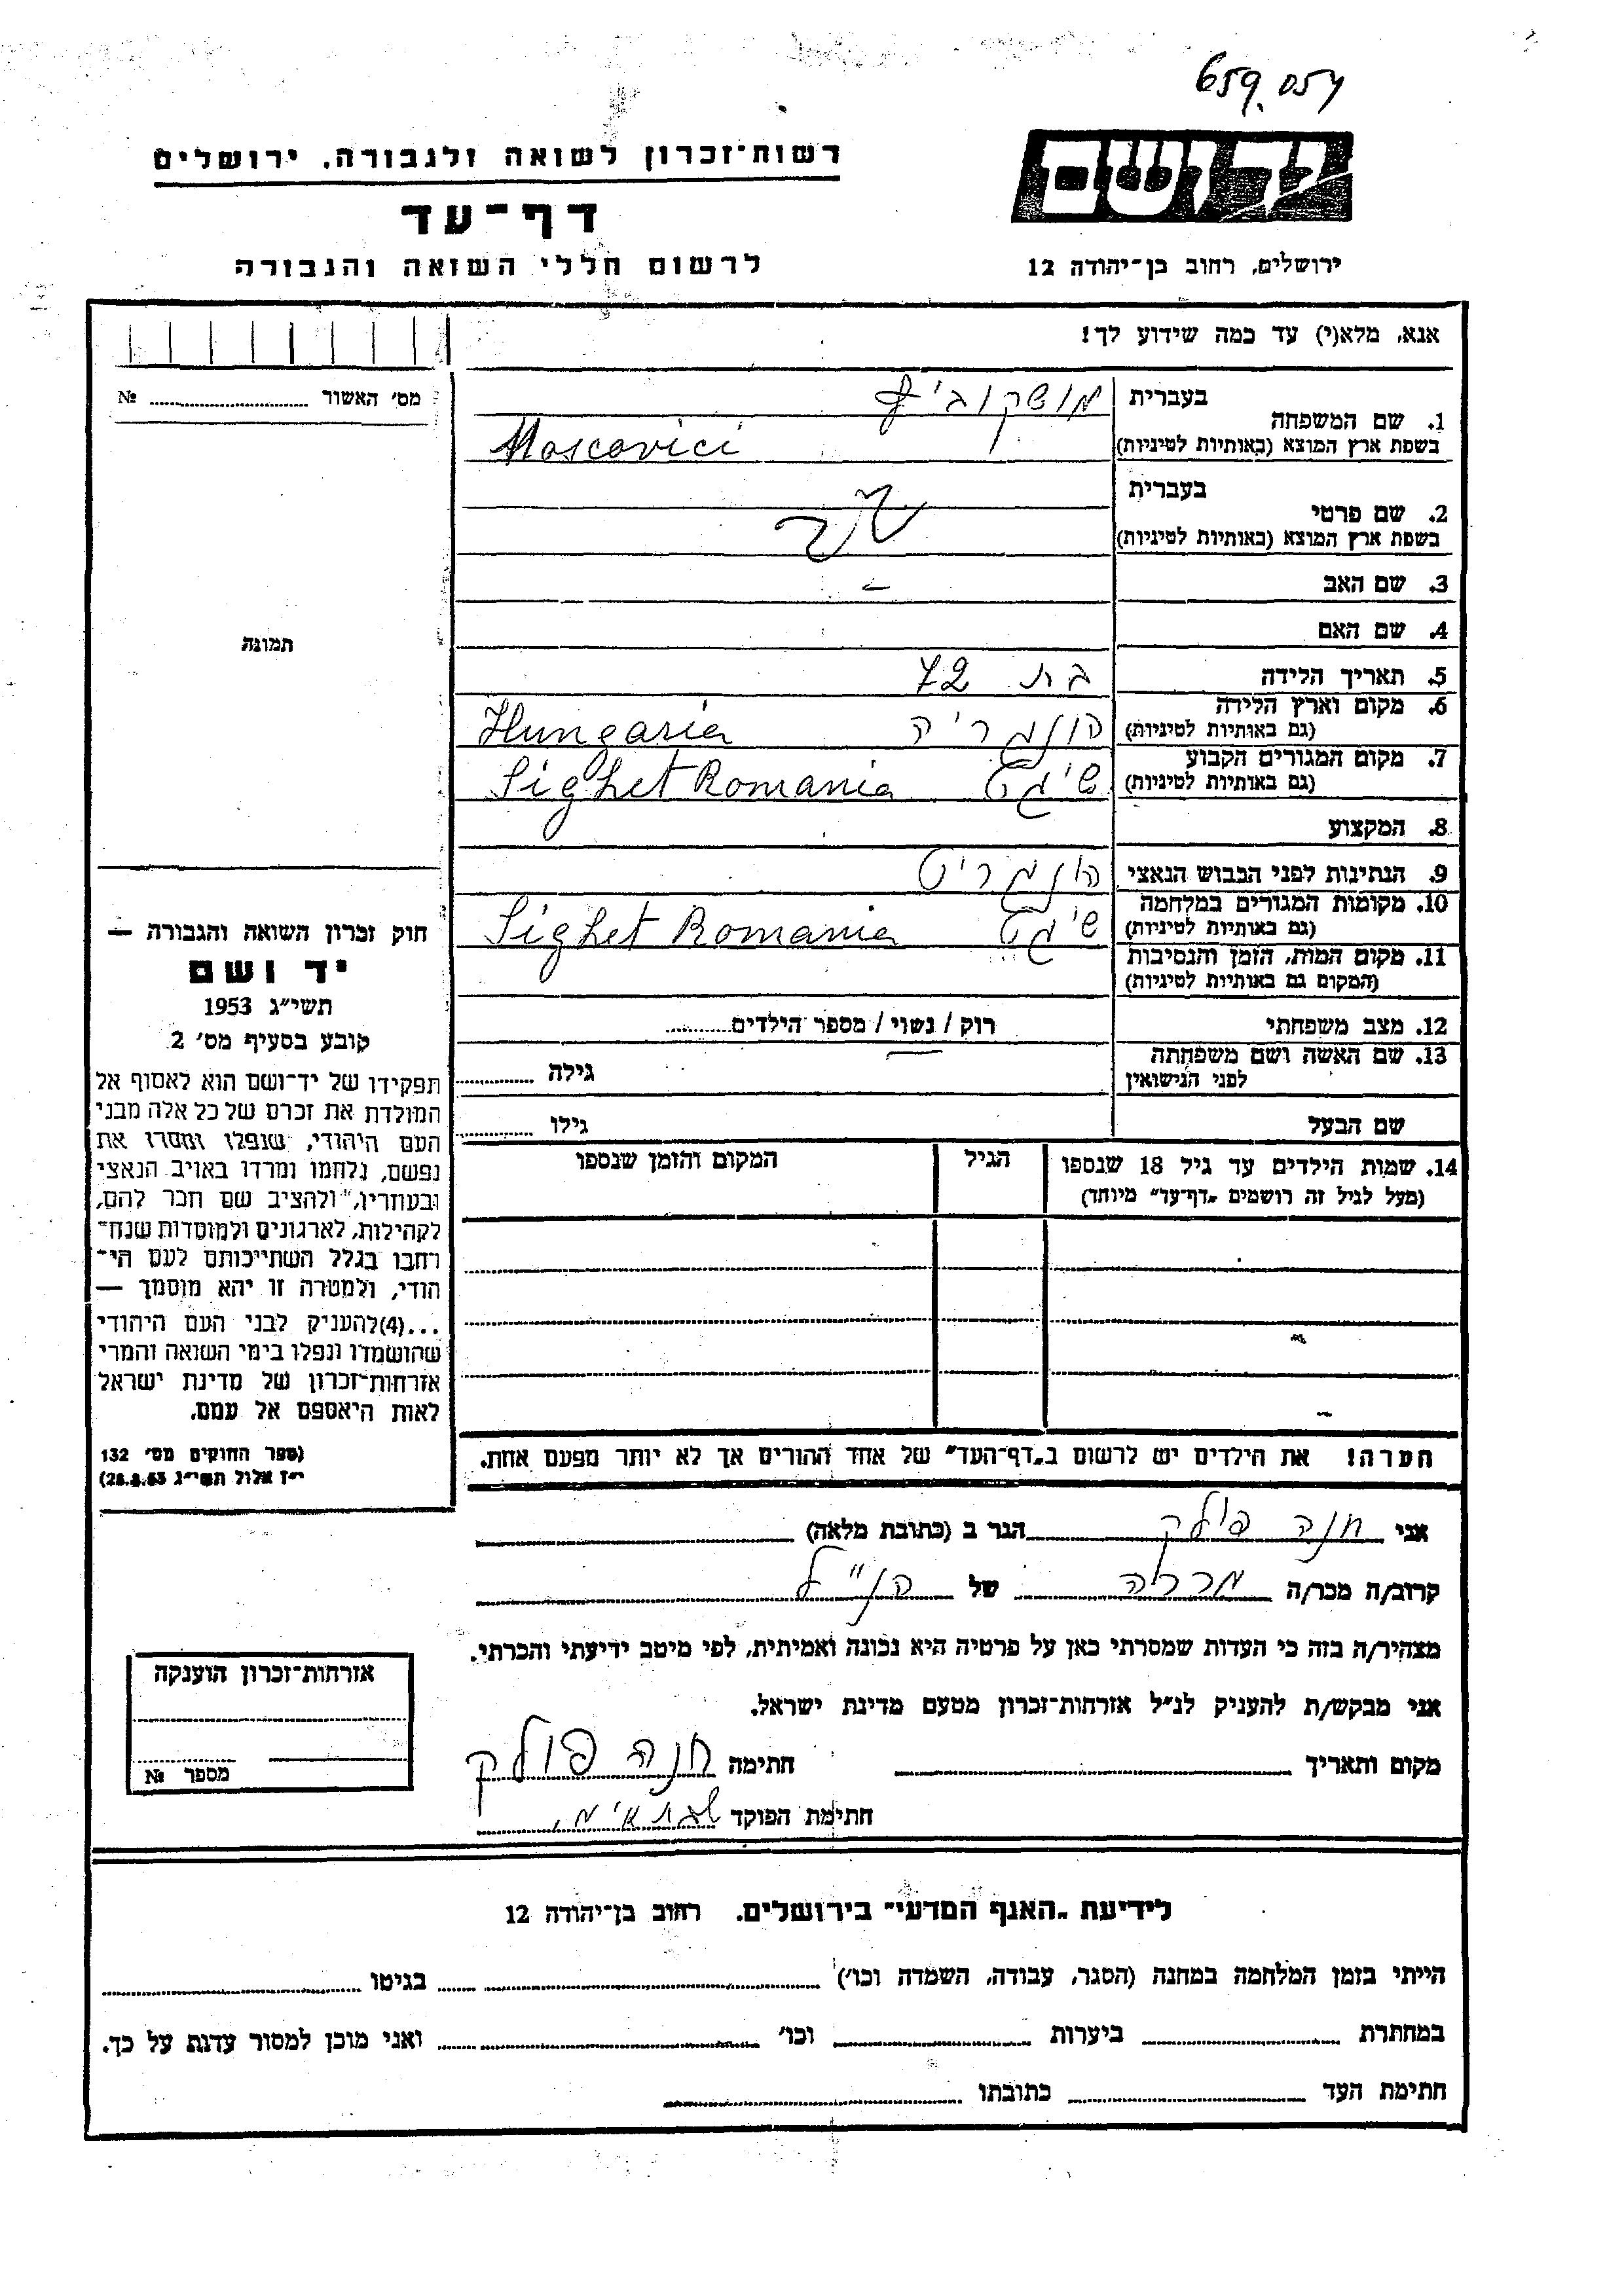 659.054
ידושם
רשות־זכרון לשואה ולגבורה. ירושלים
דף־עד
לרשום חללי השואה והגבורה
ירושלים, רחוב בן־יהודה 12
אנא, מלא(י) עד כמה שידוע לך!
מס׳ האשור №
תמונה
בעברית
מושקוביץ
1. שם המשפחה
בשפת ארץ המוצא (באותיות לטיניות)
Moscovici
בעברית
2. שם פרטי
בשפת ארץ המוצא (באותיות לטיניות)
3. שם האב -
4. שם האם
5. תאריך הלידה בת 72
6. מקום וארץ הלידה
(גם באותיות לטיניות) הונגריה Hungaria
7. מקום המגורים הקבוע
(גם באותיות לטיניות) שיגט Sighet Romania
8. המקצוע
9. הנתינות לפני הכבוש הנאצי הונגרית
10. מקומות המגורים במלחמה
(גם באותיות לטיניות) שיגט Sighet Romania
11. מקום המות, הזמן והנסיבות
(המקום גם באותיות לטיניות)
12. מצב משפחתי רוק / נשוי / מספר הילדים
13. שם האשה ושם משפחתה
לפני הנישואין גילה
שם הבעל גילו
14. שמות הילדים עד גיל 18 שנספו הגיל המקום והזמן שנספו
(מעל לגיל זה רושמים „דף־עד״ מיוחד)
חוק זכרון השואה והגבורה —
יד ושם
תשי״ג 1953
קובע בסעיף מס׳ 2
תפקידו של יד־ושם הוא לאסוף אל
המולדת את זכרם של כל אלה מבני
העם היהודי, שנפלו ומסרו את
נפשם, נלחמו ומרדו באויב הנאצי
ובעוזריו,״ ולהציב שם וזכר להם,
לקהילות, לארגונים ולמוסדות שנח־
רחבו בגלל השתייכותם לעם הי־
הודי, ולמטרה זו יהא מוסמך —
...(4)להעניק לבני העם היהודי
שהושמדו ונפלו בימי השואה והמרי
אזרחות־זכרון של מדינת ישראל
לאות היאספם אל עמם.
(ספר החוקים מס׳ 132
י״ז אלול תשי״ג 28.8.53)
הערה! את הילדים יש לרשום ב„דף־העד״ של אחד ההורים אך לא יותר מפעם אחת.
אני חנה פולק הגר ב (כתובת מלאה)
קרוב/ה מכר/ה מכרה של הנ״ל
מצהיר/ה בזה כי העדות שמסרתי כאן על פרטיה היא נכונה ואמיתית, לפי מיטב ידיעתי והכרתי.
אני מבקש/ת להעניק לנ״ל אזרחות־זכרון מטעם מדינת ישראל.
מקום ותאריך חתימה חנה פולק
חתימת הפוקד
אזרחות־זכרון הוענקה
מספר №
לידיעת „האגף המדעי״ בירושלים. רחוב בן־יהודה 12
הייתי בזמן המלחמה במחנה (הסגר, עבודה, השמדה וכו׳) בגיטו
במחתרת ביערות וכו׳ ואני מוכן למסור עדות על כך.
חתימת העד כתובתו